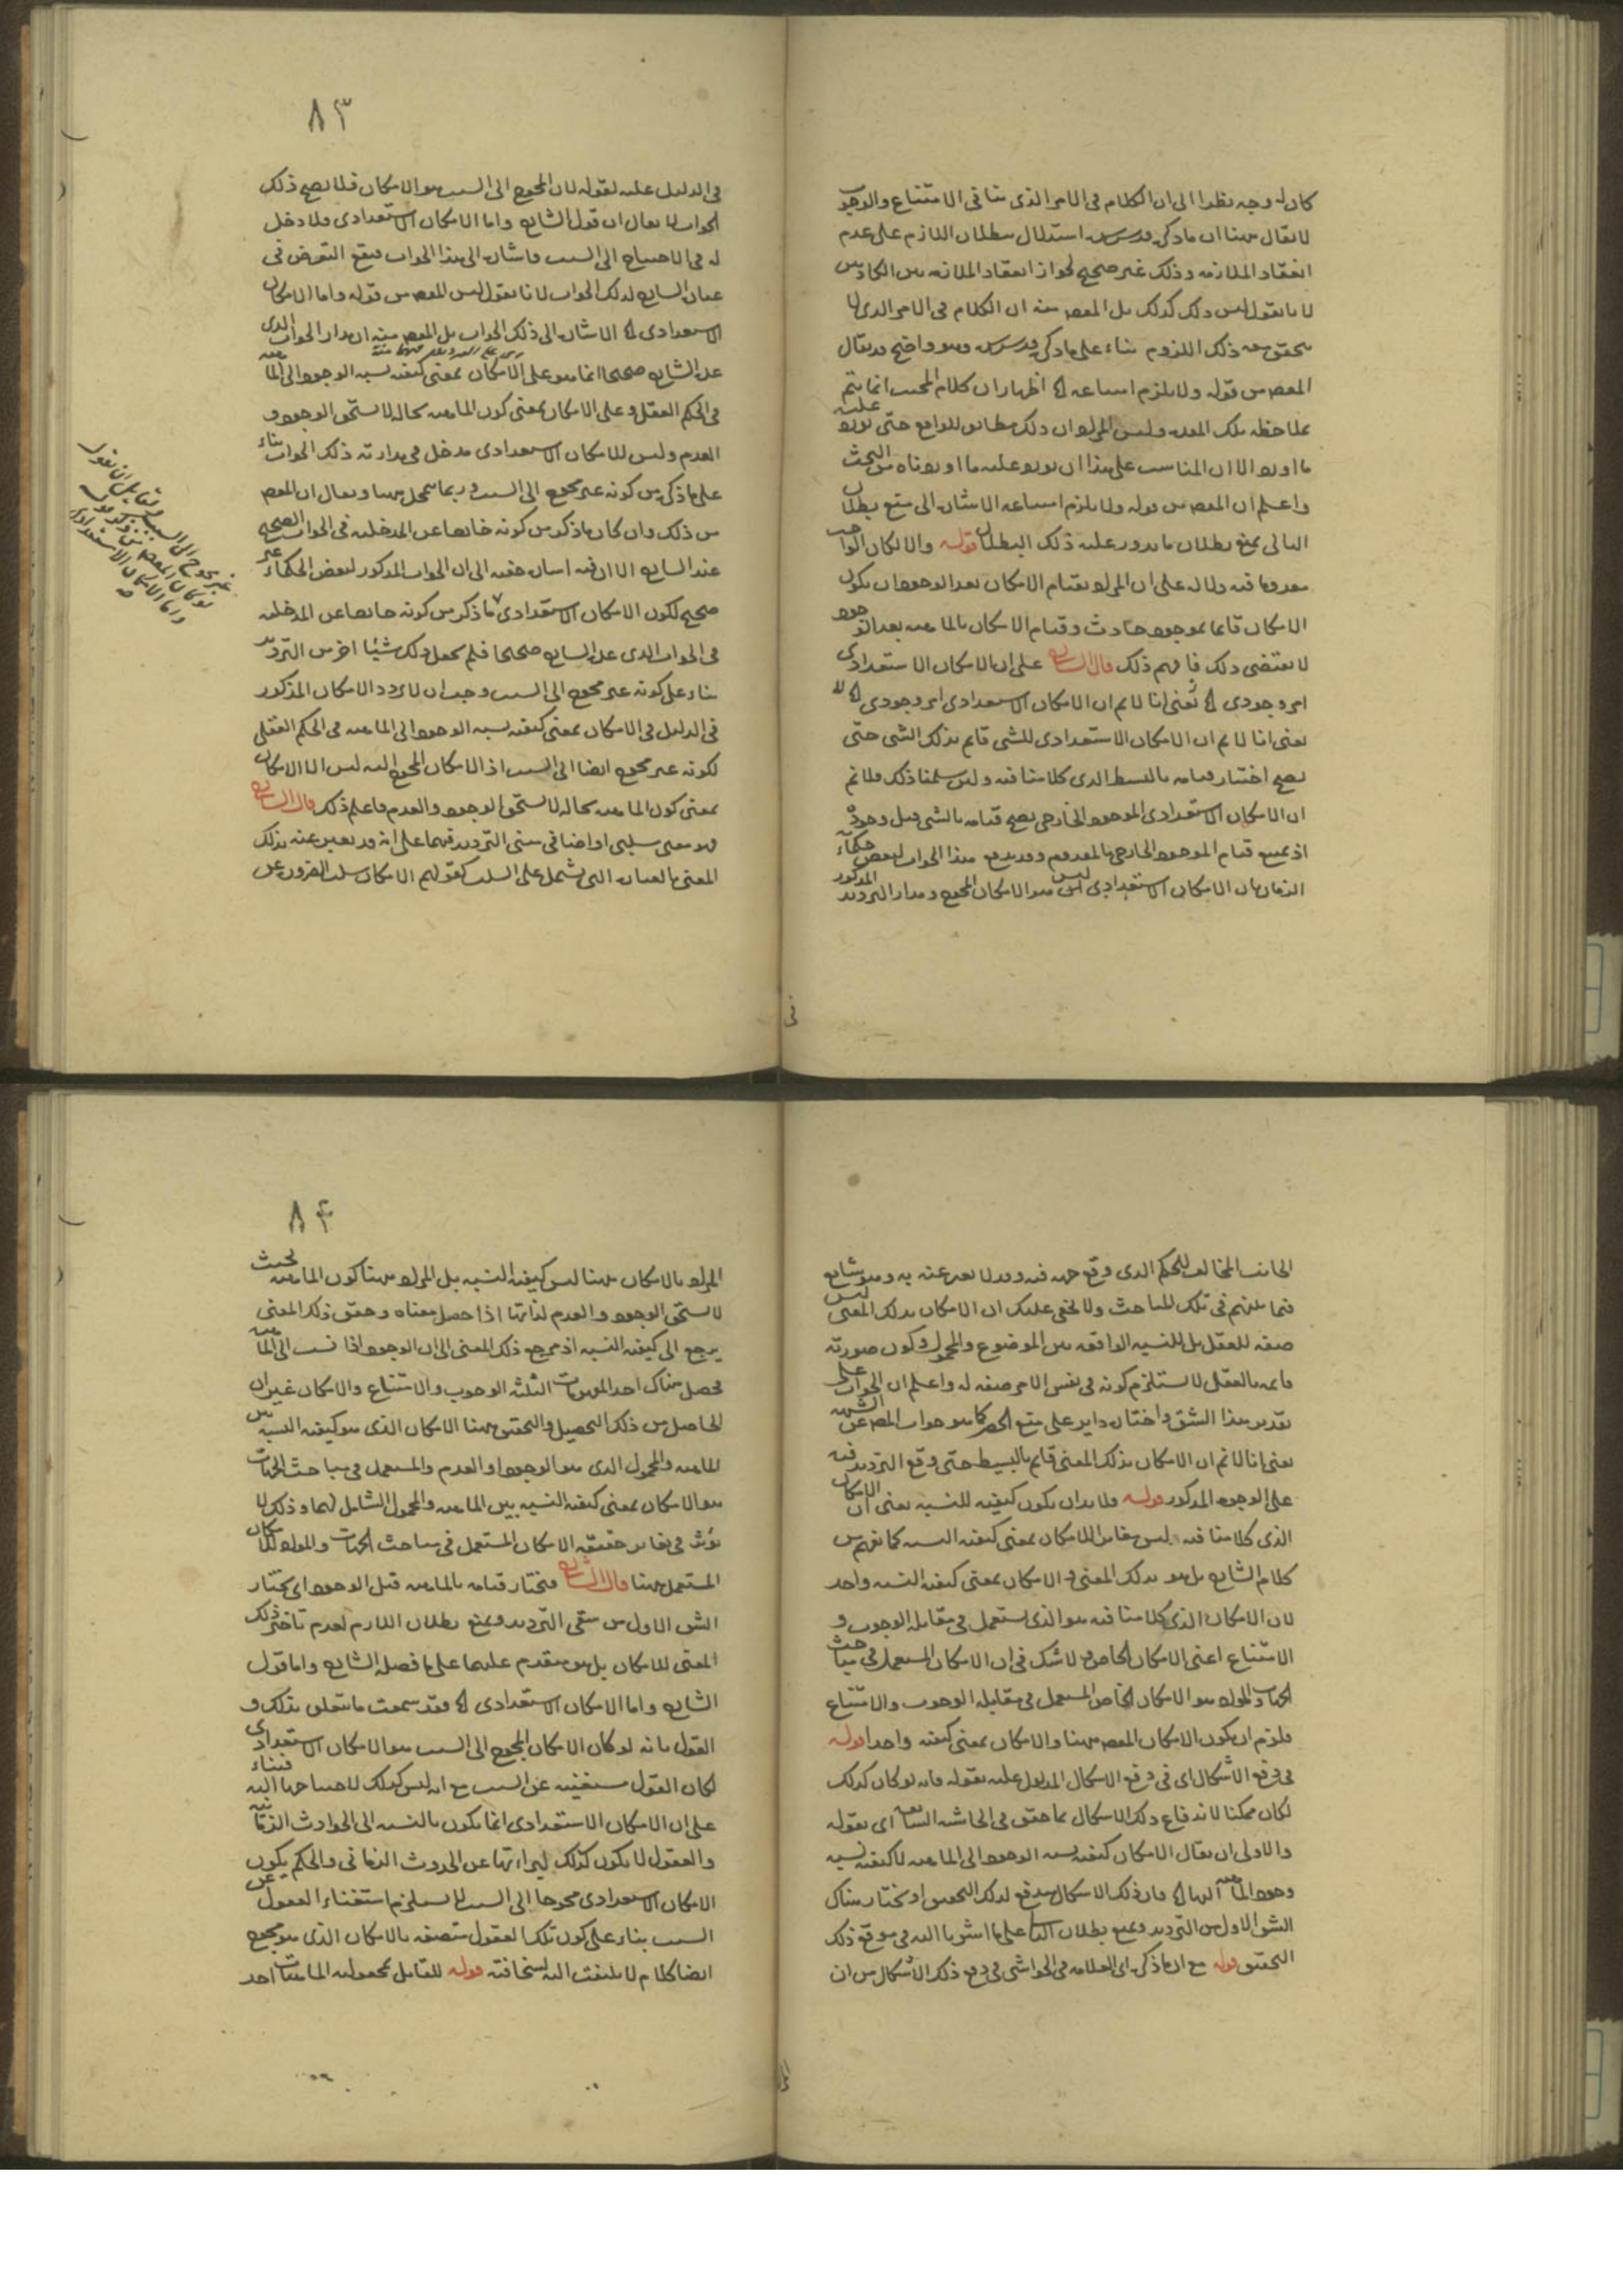 كان له وجه نظرا الى ان الكلام فى الامر الذى ينافى الامتناع والوجوب
لا يقال ههنا ان ما ذكره قدس سره استدلال ببطلان اللازم على عدم
انعقاد الملازمة وذلك غير صحيح لجواز انعقاد الملازمة بين الكاذبين
لانا نقول ليس ذلك كذلك بل المقصود منه ان الكلام فى الامر الذى لا
يتحقق معه ذلك اللزوم بناء على ما ذكره قدس سره وهو واضح قد يقال
المقصود من قوله ولا يلزم امتناعه الخ اظهار ان كلام المجيب انما يتم
بملاحظة تلك المقدمة وليس المراد ان ذلك مطابق للواقع حتى يورد عليه
ما اورد الا ان المناسب على هذا ان يورد عليه ما اوردناه من البحث
واعلم ان المقصود من قوله ولا يلزم امتناعه الاشارة الى منع بطلان
التالى بمنع بطلان ما يدور عليه ذلك البطلان قوله والا لكان الواجب
معدوما فيه دلالة على ان المراد بقيام الامكان بعد الوجود ان يكون
الامكان قائما بموجود حادث وقيام الامكان بالماهية بعد الوجود
لا يقتضى ذلك فافهم ذلك قال الشارح على ان الامكان الاستعدادى
امر وجودى الخ يعنى انا لا نم ان الامكان الاستعدادى امر وجودى الخ
يعنى انا لا نم ان الامكان الاستعدادى للشئ قايم بذلك الشئ حتى
يصح اختيار قيامه بالبسيط الذى كلامنا فيه ولئن سلمنا ذلك فلا نم
ان الامكان الاستعدادى الموجود الخارجى يصح قيامه بالشئ قبل وجوده
اذ يمتنع قيام الموجود الخارجى بالمعدوم وقد يدفع هذا الجواب لبعض حكماء
الزمان بان الامكان الاستعدادى ليس هو الامكان المحوج ومدار الترديد المذكور
فى
٨٣
فى الدليل عليه لقوله لان المحوج الى السبب هو الامكان فلا يصح ذلك
الجواب لا يقال ان قول الشارح واما الامكان الاستعدادى فلا دخل
له فى الاحتياج الى السبب فاشارة الى هذا الجواب فيقع التعرض فى
عبارة الشارح لذلك الجواب لانا نقول ليس المقصود من قوله واما الامكان
الاستعدادى الخ الاشارة الى ذلك الجواب بل المقصود منه ان مدار الجواب الذى
عده الشارح صحيحا انما هو على الامكان بمعنى كيفية نسبة الوجود الى الماهية
فى الحكم العقلى وعلى الامكان بمعنى كون الماهية بحالة لا تستحق الوجود و
العدم وليس للامكان الاستعدادى مدخل فى مدارية ذلك الجواب بناء
على ما ذكره من كونه غير محوج الى السبب وربما يتمحل ههنا ويقال ان المقصود
من ذلك وان كان ما ذكر من كونه خارجا عن المدخلية فى الجواب الصحيح
عند الشارح الا ان فيه اشارة خفية الى ان الجواب المذكور لبعض الحكماء غير
صحيح لكون الامكان الاستعدادى ما ذكر من كونه خارجا عن المدخلية
فى الجواب الذى عده الشارح صحيحا فلم يجعل ذلك شيئا اخر من الترديد
بناء على كونه غير محوج الى السبب وجب ان لا يردد الامكان المذكور
فى الدليل فى الامكان بمعنى كيفية نسبة الوجود الى الماهية فى الحكم العقلى
لكونه غير محوج ايضا الى السبب اذ الامكان المحوج اليه ليس الا الامكان
بمعنى كون الماهية بحالة لا تستحق الوجود والعدم فاعلم ذلك قال الشارح
وهو معنى سلبى او اضافى مبنى الترديد فيهما على انه قد يعبر عنه بذلك
المعنى بالعبارة التى تشتمل على السلب كقولهم الامكان سلب الضرورة عن
الجانب المخالف للحكم الذى وقع جهة فيه وقد لا يعبر عنه به وهو شايع
فيما بينهم فى تلك المباحث ولا يخفى عليك ان الامكان بذلك المعنى ليس
صفة للعقل بل للنسبة الواقعة بين الموضوع والمحمول وكون صورته
قائمة بالعقل لا يستلزم كونه فى نفس الامر صفة له واعلم ان الجواب على
تقدير هذا الشق واختياره داير على منع الحصر كما هو جواب المص عن الشبهة
يعنى انا لا نم ان الامكان بذلك المعنى قايم بالبسيط حتى وقع الترديد فيه
على الوجوه المذكور قوله فلا بد ان يكون كيفية للنسبة يعنى ان الامكان
الذى كلامنا فيه ليس مغايرا للامكان بمعنى كيفية النسبة كما يفهم من
كلام الشارح بل هو بذلك المعنى والامكان بمعنى كيفية النسبة واحد
لان الامكان الذى كلامنا فيه هو الذى يستعمل فى مقابلة الوجوب و
الامتناع اعنى الامكان الخاص ولا شك فى ان الامكان المستعمل فى مباحث
الجهات والمواد هو الامكان الخاص المستعمل فى مقابلة الوجوب والامتناع
فلزم ان يكون الامكان المقصود ههنا والامكان بمعنى كيفية واحدا قوله
فى دفع الاشكال اى فى دفع الاشكال المدلول عليه بقوله فانه لو كان كذلك
لكان ممكنا لاندفاع ذلك الاشكال بما حقق فى الحاشية السابقة اى بقوله
والاولى ان يقال الامكان كيفية نسبة الوجود الى الماهية لا كيفية نسبة
وجود الماهية اليها الخ فان ذلك الاشكال يندفع لذلك التحقيق او نختار هناك
الشق الاول من الترديد ونمنع بطلان التالى على ما اشرنا اليه فى موقع ذلك
التحقيق قوله مع ان ما ذكره اى العلامة فى الحواشى فى دفع ذلك الاشكال من ان
٨٤
المراد بالامكان ههنا ليس كيفية النسبة بل المراد ههنا كون الماهية بحيث
لا تستحق الوجود والعدم لذاتها اذا حصل معناه وحقق ذلك المعنى
يرجع الى كيفية النسبة اذ مرجع ذلك المعنى الى ان الوجود اذا نسب الى الماهية
فحصل هناك احد المفهومات الثلثة الوجوب والامتناع والامكان غير ان
الحاصل من ذلك التحصيل والتحقيق ههنا الامكان الذى هو كيفية النسبة بين
الماهية والمحمول الذى هو الوجود او العدم والمستعمل فى مباحث الجهات
هو الامكان بمعنى كيفية النسبة بين الماهية والمحمول الشامل لهما وذلك لا
يؤثر فى تغاير حقيقة الامكان المستعمل فى مباحث الجهات والمواد للامكان
المستعمل ههنا قال الشارح فنختار قيامه بالماهية قبل الوجود اى نختار
الشق الاول من شقى الترديد ونمنع بطلان اللازم لعدم تأخر ذلك
المعنى للامكان بل هو متقدم عليها على ما فصله الشارح واما قول
الشارح واما الامكان الاستعدادى الخ فقد سمعت ما يتعلق بذلك و
القول بانه لو كان الامكان المحوج الى السبب هو الامكان الاستعدادى
لكان العقول مستغنية عن السبب مع انه ليس كذلك لاحتياجها اليه فبناء
على ان الامكان الاستعدادى انما يكون بالنسبة الى الحوادث الزمانية
والعقول لا يكون كذلك لبراءتها عن الحدوث الزمانى والحكم بكون
الامكان الاستعدادى محوجا الى السبب لا يستلزم استغناء العقول عن
السبب بناء على كون تلك العقول متصفة بالامكان الذى هو محوج
ايضا كلام لا يلتفت اليه لسخافته قوله للقايل بمجعولية الماهيات احد